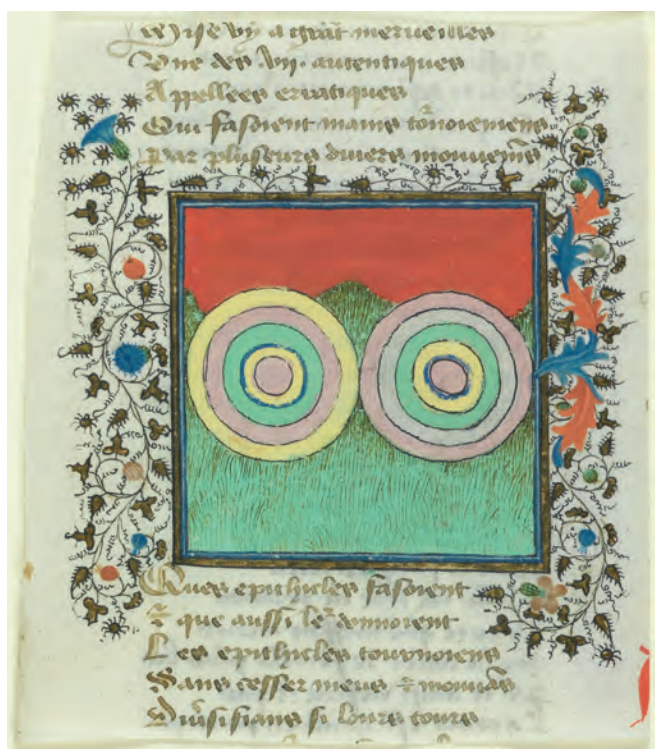 vy a grāt merueilles
Vne des vij. autentiques
Appellees erratiques
Qui fasoient mains tōnoiemens
Par pluseurs diuers mouuemēs
Ques epichicles fasoient
⁊ que aussi le᷑ donnoient
Les epichicles tournoiens
Sans cesser meus ⁊ mouuās
si lours tours